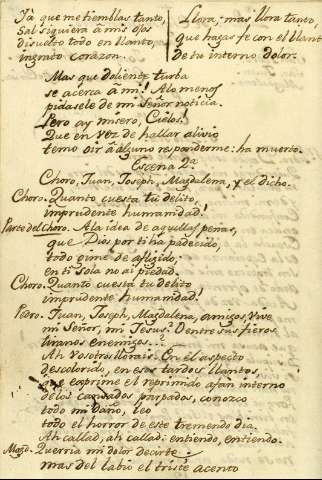 Ya que me tiemblas tanto,
Sal siquiera à mis ojos
disuelto todo en llanto,
ingrato corazon.
Llora; mas llora tanto,
que hagas fe con el llanto
de tu interno dolor.
Mas que doliente turba
se acerca à mi! Alo menos
pidasele de mi Señor noticia.
Pero ay misero, Cielos!
Que en vez de hallar alivio
temo oir à alguno responderme: ha muerto.
Escena 2ª
Choro, Juan, Joseph, Magdalena, y el dicho.
Choro. Quanto cuesta tu delito,
imprudente humanidad!
Parte del Choro. A la idea de aquellas penas,
que Dios por ti ha padecido,
todo gime de afligido;
en ti sola no ai piedad.
Choro. Quanto cuesta tu delito
imprudente humanidad!
Pedro. Juan, Joseph, Magdalena, amigos, vive
mi Señor, mi Jesus? O entre sus fieros
tiranos enemigos...?
Ah Vosotros llorais. En el aspecto
descolorido, en esos tardos llantos,
que exprime el reprimido afan interno
de los cansados parpados, conozco
todo mi daño, leo
todo el horror de este tremendo dia.
Ah callad, ah callad: entiendo, entiendo.
Magd. Querria mi dolor decirte
mas del labio el triste acento